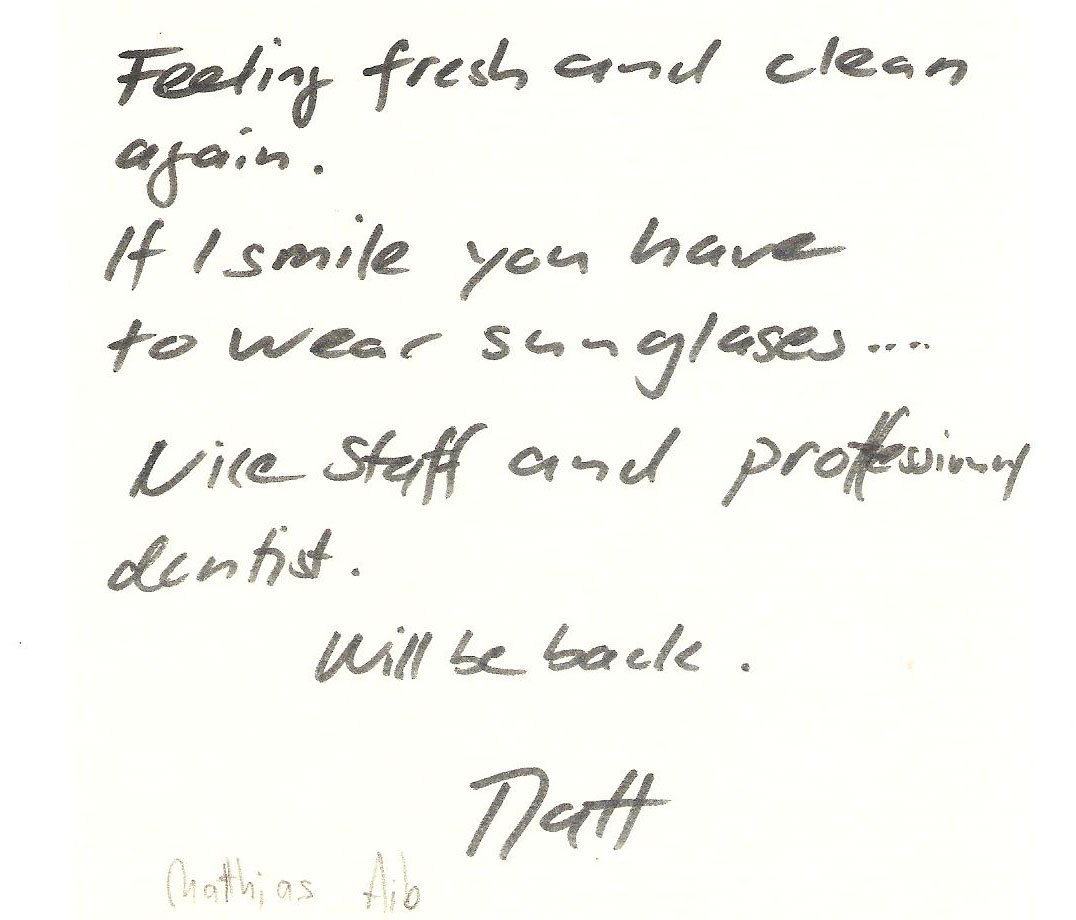 Feeling fresh and clean
again.
If I smile you have
to wear sunglases....
Nice Staff and proffessional
dentist.
Will be back.
Matt
Mathias Aib